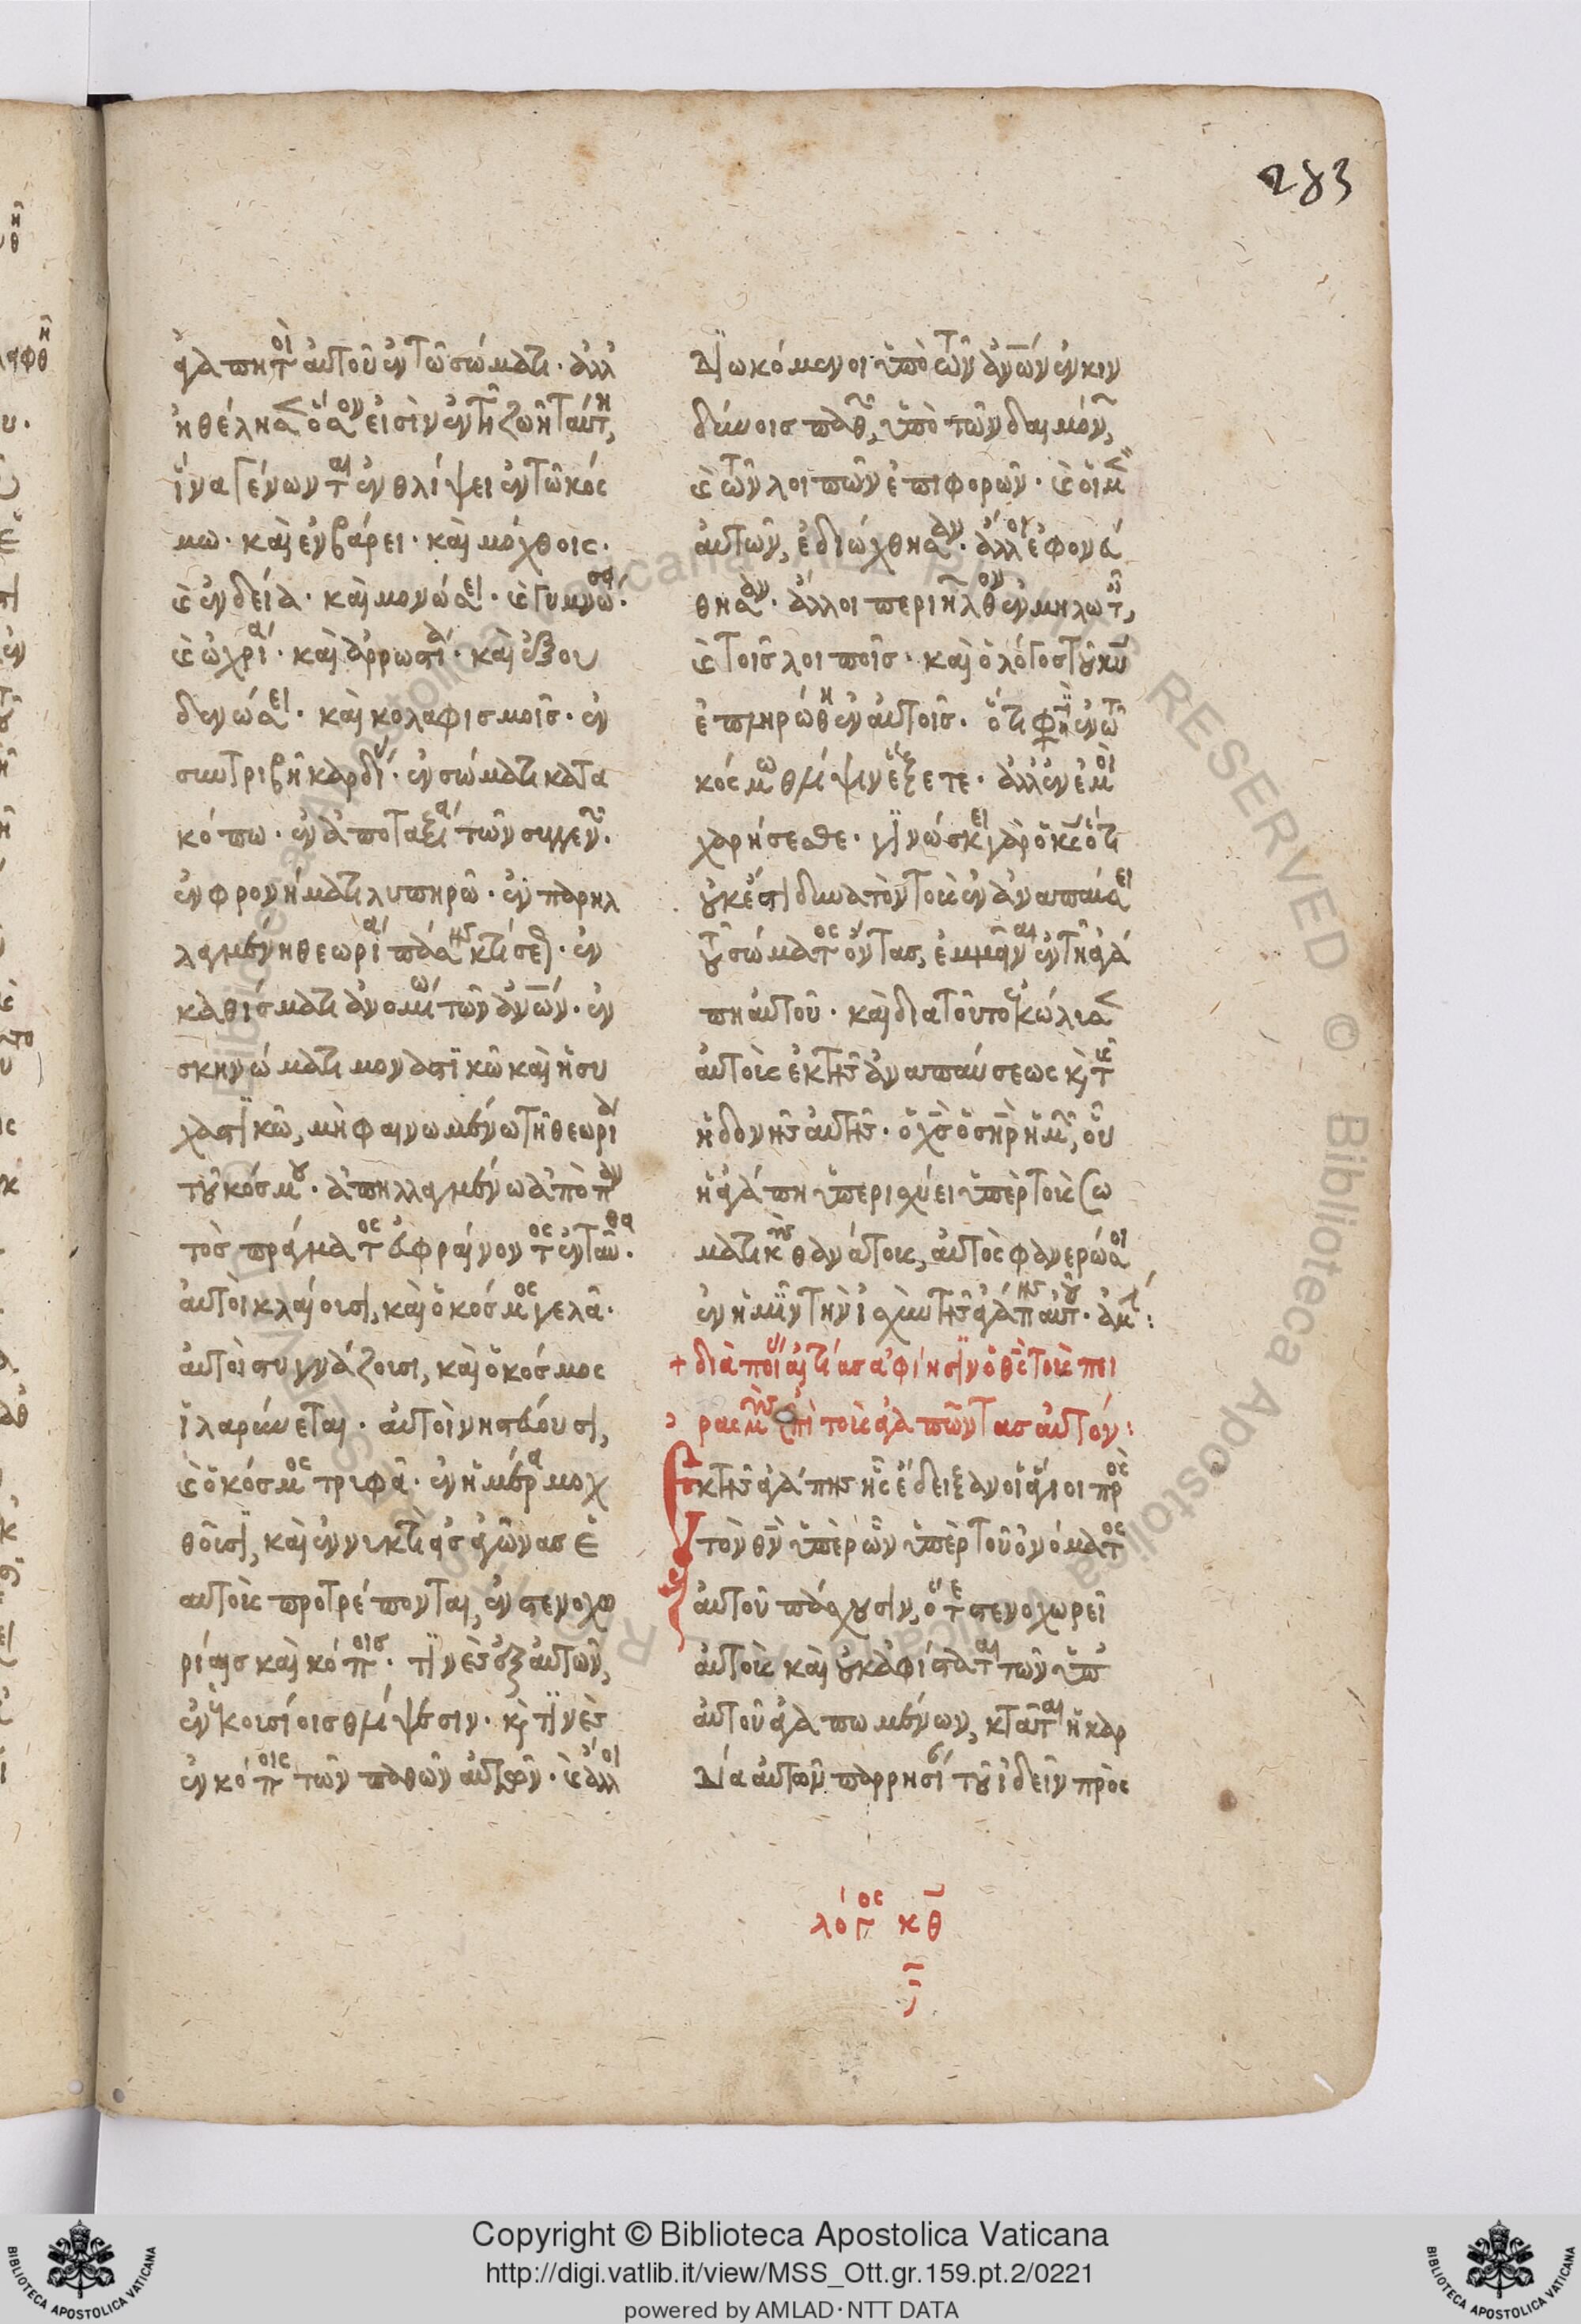 283
ἀγαπητοὶ αὐτοῦ ἐν τῷ σώματι · ἀλλ
ἠθέλησεν ὅσον εἰσὶν ἐν τῇ ζωῇ ταύτη,
ἵνα γένωνται ἐν θλίψει ἐν τῷ κόσ
μω · καὶ ἐν βάρει · καὶ μόχθοις ·
καὶ ἐνδεία · καὶ μονώσει · καὶ γυμνώσ ·
καὶ ὠχρία · καὶ ἀρρωστία · καὶ ἐξου
δενώσει · καὶ κολαφισμοῖς · ἐν
συντριβῆ καρδί · ἐν σώματι κατα
κόπω · ἐν ἀποταξία τῶν συγγεν ·
ἐν φρονήματι λυπηρῶ · ἐν παρηλ
λαγμένη θεωρία πάσης κτίσε · ἐν
καθίσματι ἀνομοίω τῶν ἀνων · ἐν
σκηνώματι μοναστικῶ καὶ ἡσυ
χαστικῶ, μὴ φαινωμένω τῇ θεωρία
τοῦ κόσμου · ἀπηλλαγμένω ἀπὸ παν
τὸς πράγματος εὐφραίνοντος ἐνταῦθα ·
αὐτοὶ κλαίουσι, καὶ ὁ κόσμος γελᾶ ·
αὐτοὶ στυγνάζουσι, καὶ ὁ κόσμος
ἱλαρύνεται · αὐτοὶ νηστεύουσι,
καὶ ὁ κόσμος τρυφᾶ · ἐν ἡμέρα μοχ
θοῦσι, καὶ ἐν νυκτὶ εἰς ἀγῶνας ἑ
αυτοὺς προτρέπονται, ἐν στενοχω
ρίαις καὶ κόποις · τινὲς ἐξ αὐτῶν,
ἐν ἑκουσίοις θλίψεσιν · καὶ τινὲς
ἐν κόποις τῶν παθῶν αὐτῶν · καὶ ἄλλοι
διωκόμενοι ὑπὸ τῶν ἀνων ἐν κιν
δύνοις παθῶν, ὑπὸ τῶν δαιμόνων,
καὶ τῶν λοιπῶν ἐπιφορῶν · καὶ οἱ μὲν
αὐτῶν, ἐδιώχθησαν · ἄλλοι ἐφονεύ
θησαν · ἄλλοι περιῆλθον ἐν μηλωτ,
καὶ τοῖς λοιποῖς · καὶ ὁ λόγος τοῦ κυ
ἐπληρώθη ἐν αὐτοῖς · ὅτι φησὶν ἐν τῷ
κόσμω θλίψιν ἕξετε · ἀλλ ἐν ἐμοὶ
χαρήσεσθε · γινώσκει γὰρ ὁ κς ὅτι
οὐκ ἔστι δυνατὸν τοὺς ἐν ἀναπαύσει
τοῦ σώματος ὄντας, ἐμμεῖναι ἐν τῇ ἀγά
πη αὐτοῦ · καὶ διατοῦτο ἐκώλυσεν
αὐτοὺς ἐκ τῆς ἀναπαύσεως καὶ τῆς
ἡδονῆς αὐτῆς · ὁ χς ὁ σηρ ἡμῶν, οὗ
ἡ ἀγάπη ὑπερισχύει ὑπὲρ τοὺς σω
ματικοὺς θανάτους, αὐτὸς φανερώσοι
ἐν ἡμῖν τὴν ἰσχὺν τῆς ἀγάπης αὐτοῦ · ἀμ :
+ διὰ ποίαν αἰτίαν ἀφίησιν ὁ θς τοὺς πει
ρασμοὺς ἐπὶ τοὺς ἀγαπῶντας αὐτόν :
Ἐκ τῆς ἀγάπης ἧς ἔδειξαν οἱ ἅγιοι πρὸς
τὸν θν ὑπὲρ ὧν ὑπὲρ τοῦ ὀνόματος
αὐτοῦ πάσχουσιν, ὅτε στενοχωρεῖ
αὐτοὺς καὶ οὐκ ἀφίσταται τῶν ὑπ
αὐτοῦ ἀγαπωμένων, κτᾶται ἡ καρ
δία αὐτῶν παρρησί τοῦ ἰδεῖν πρὸς
λόγος κθ